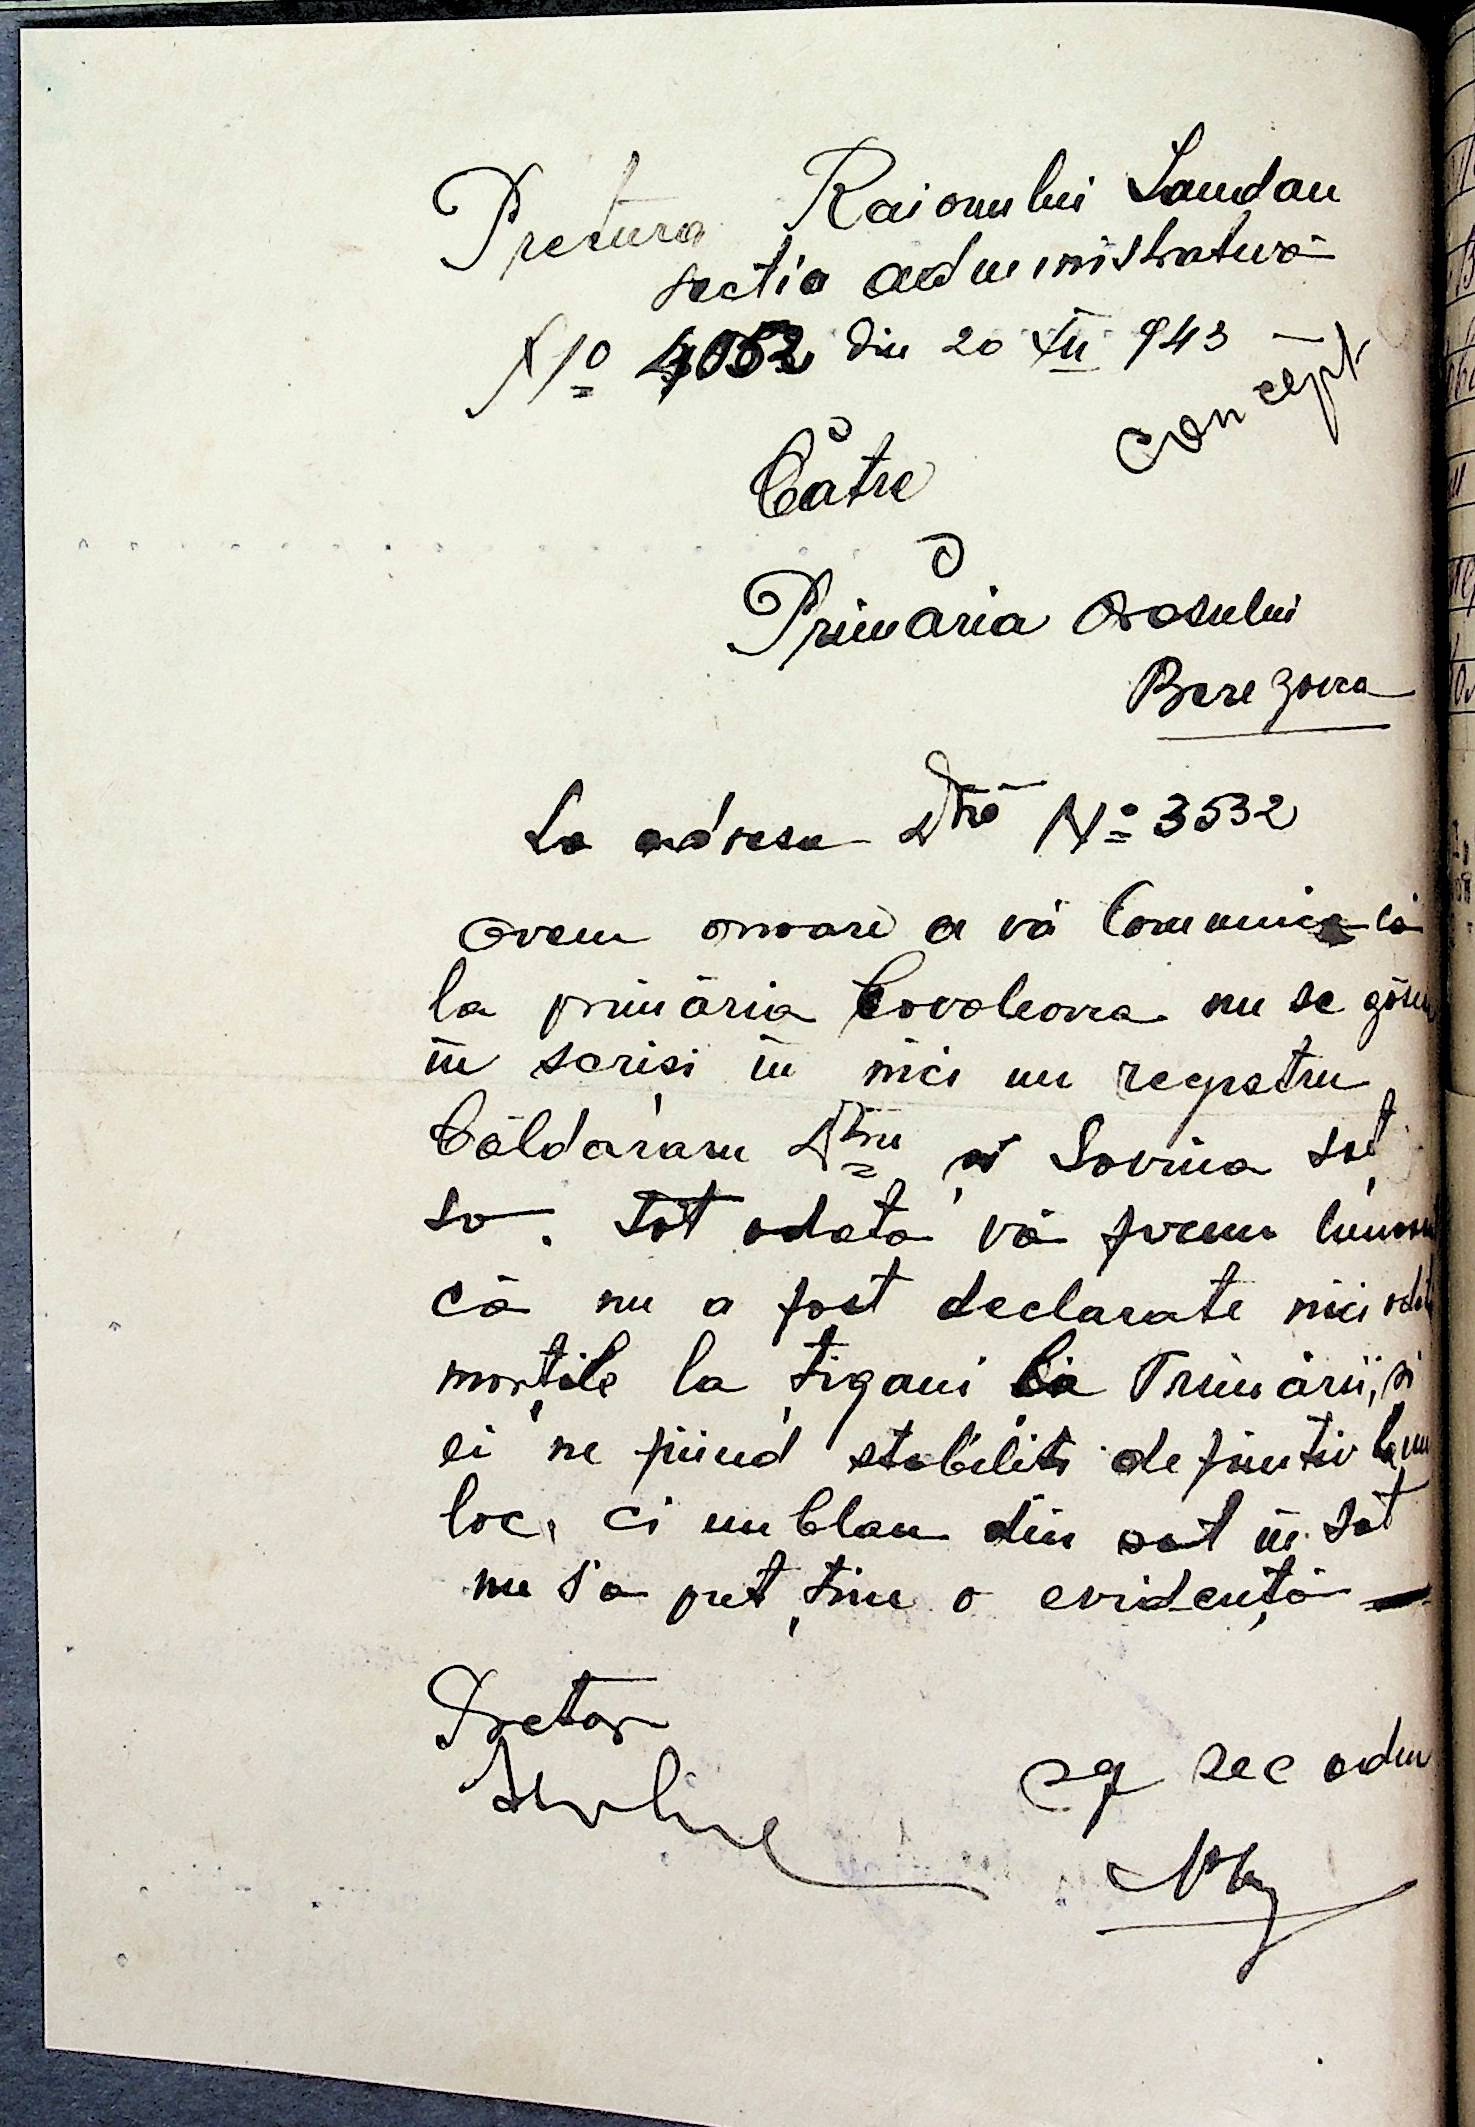 Pretura Raionului Landau
sectia administrativă
No 4052 din 20 XII 943
concept
Către
Primăria Orasului
Berezovca
La adresa Dtră No 3532
avem onoare a vă Comunica că
la primăria Covaleovca nu se găsesc
in scrisi in nici un registru
Căldăraru Dtru și Savina soț
sa. Tot odata vă facem cunoscut
că nu a fost declarate nici odată
morțile la țigani la Primării, si
ei ne fiind stabiliti definitiv la un
loc, ci umblau din sat in sat
nu s'a put ține o evidență
Pretor
sef sec adm